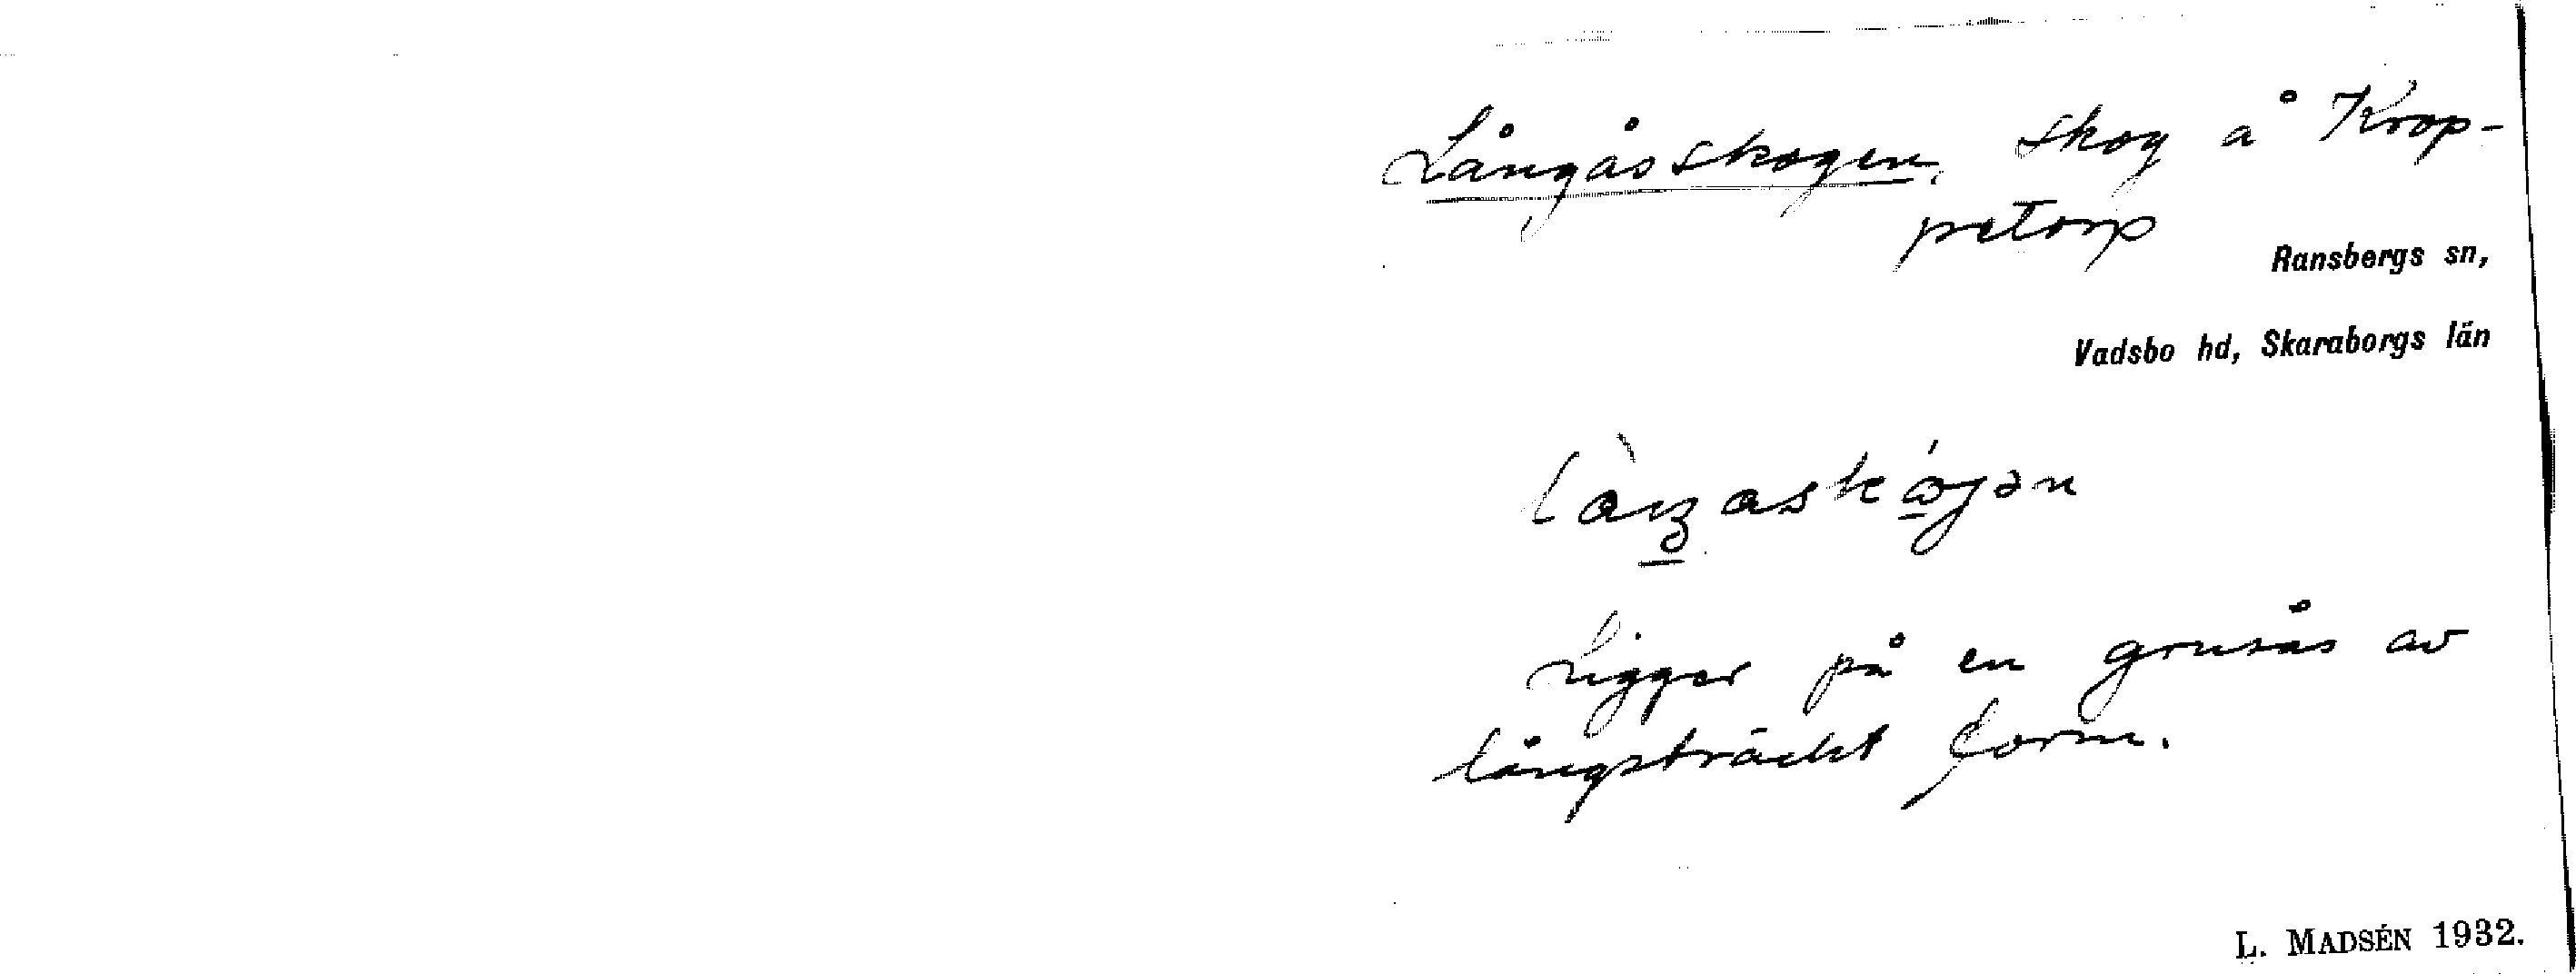 Långåsskogen, skog å Krop-
petorp
Ransbergs sn,
Vadsbo hd, Skaraborgs län
Ligger på en grusås av
långsträckt form.
L. MADSÉN 1932.